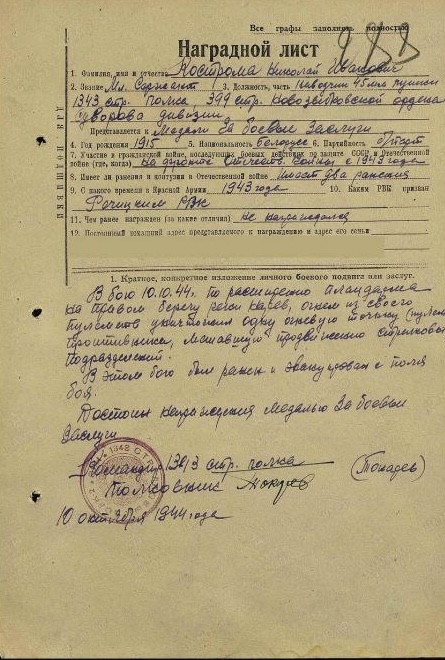 Все графы заполнять полностью
988
Наградной лист
1. Фамилия, имя и отчество Кострома Николай Иванович
2. Звание Мл. Сержант 3. Должность, часть Наводчик 45 мм пушки
1343 стр. полка, 399 стр. Новозыбковской ордена
Суворова дивизии
Представляется к Медали За боевые Заслуги
4. Год рождения 1915 5. Национальность Белорус 6. Партийность б/парт
7. Участие в гражданской войне, последующих боевых действиях по защите СССР и Отечественной
войне (где, когда) на фронте Отечеств. войны с 1943 года
8. Имеет ли ранения и контузии в Отечественной войне Имеет два ранения
9. С какого времени в Красной Армии 1943 года 10. Каким РВК призван
Речицким РВК
11. Чем ранее награжден (за какие отличия) не награждался
12. Постоянный домашний адрес представляемого к награждению и адрес его семьи
ДЛЯ ПОДШИВКИ
1. Краткое, конкретное изложение личного боевого подвига или заслуг.
В бою 10.10.44г. по расширению плацдарма
на правом берегу реки Нарев, огнем из своего
пулемета уничтожил одну огневую точку
противника, мешавшую продвижению стрелковых
Подразделений.
В этом бою был ранен и эвакуирован с поля
боя.
Достоин награждения медалью За боевые
Заслуги
Командир 1343 стр. полка
Полковник (Токарев)
10 октября 1944 года